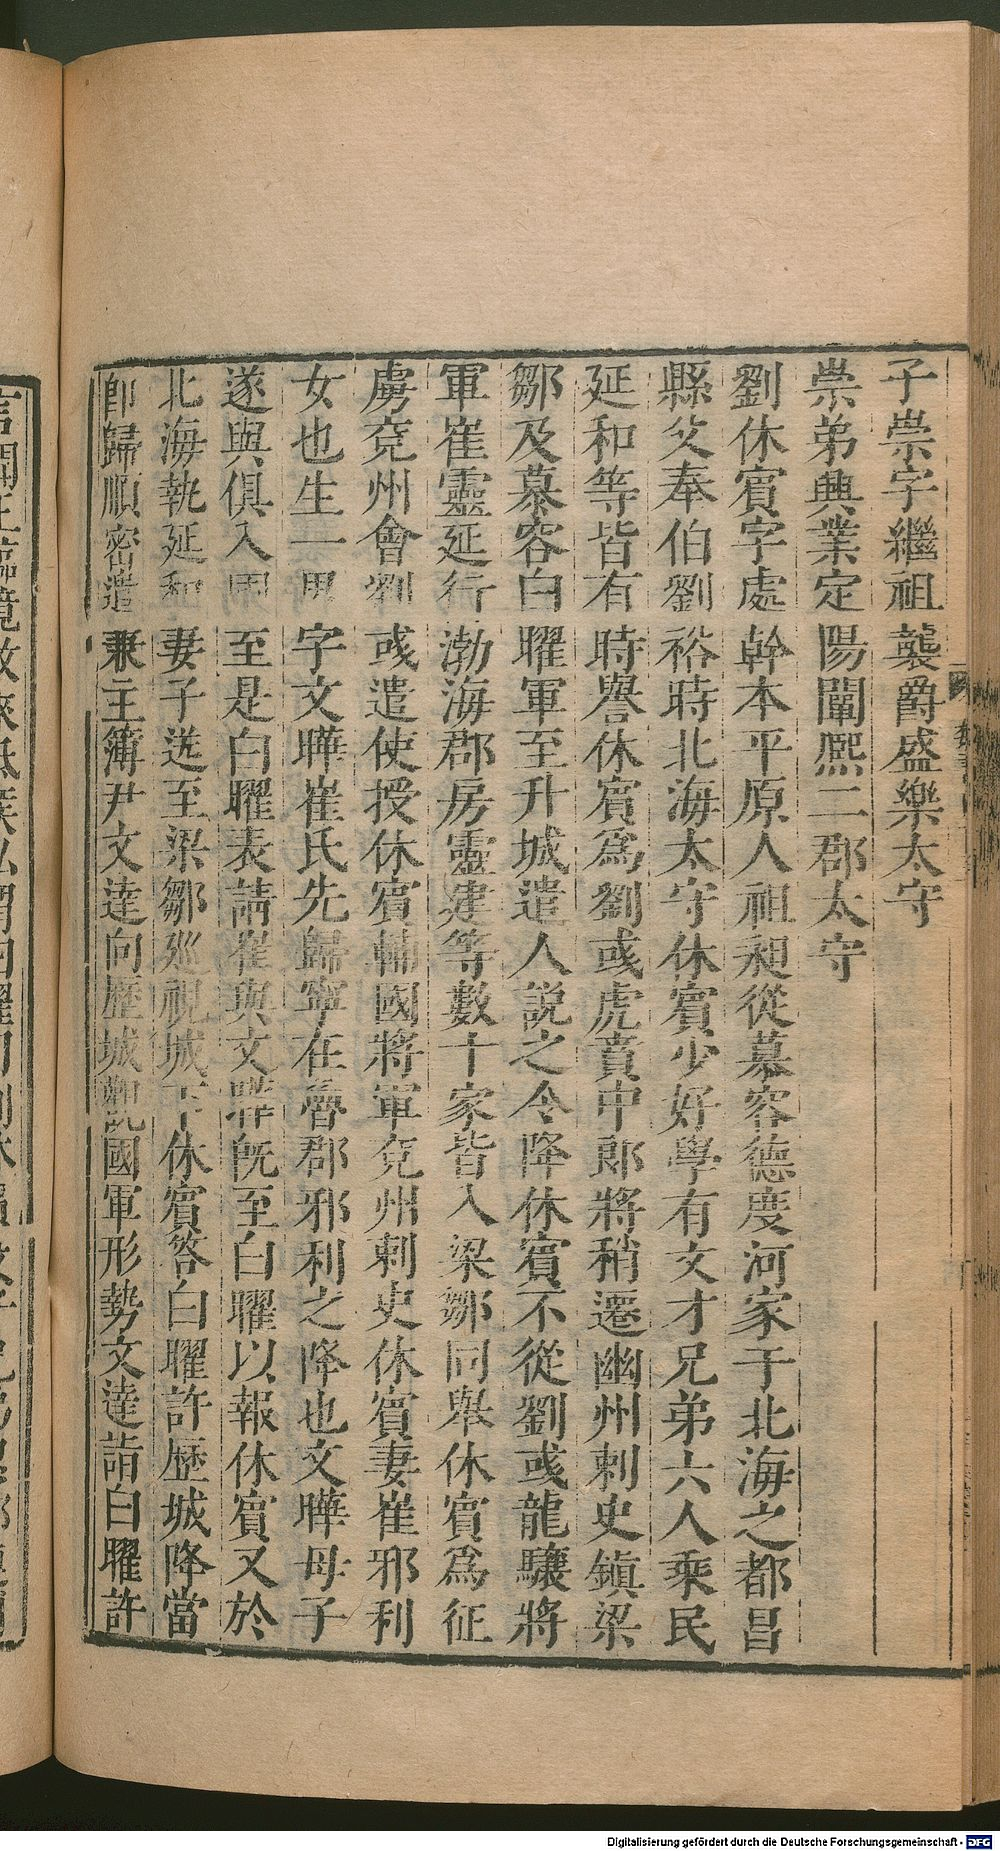 子崇字繼祖襲爵盛樂太守
崇弟興業定陽闡熙二郡太守
劉休賓字處幹本平原人祖昶從慕容德度河家于北海之都昌
縣父奉伯劉裕時北海太守休賓少好學有文才兄弟六人乘民
延和等皆有時譽休賓爲劉彧虎賁中郎將稍遷幽州刺史鎮梁
鄒及慕容白曜軍至升城遣人說之令降休賓不從劉彧龍驤將
軍崔靈延行渤海郡房靈建等數十家皆入梁鄒同舉休賓爲征
虜兗州會劉彧遣使授休賓輔國將軍兗州刺史休賓妻崔邪利
女也生一男字文曄崔氏先歸寧在魯郡邪利之降也文曄母子
遂與俱入國至是白曜表請崔與文曄旣至白曜以報休賓又於
北海執延和妻子送至梁鄒巡視城下休賓答白曜許歷城降當
卽歸順密遣兼主簿尹文達向歷城觀國軍形勢文達詣白曜許
Digitalisierung gefördert durch die Deutsche Forschungsgemeinschaft - DFG